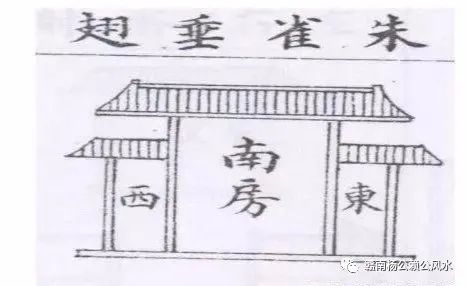 朱雀垂翅
南房
西
東
赣南杨公赖公风水